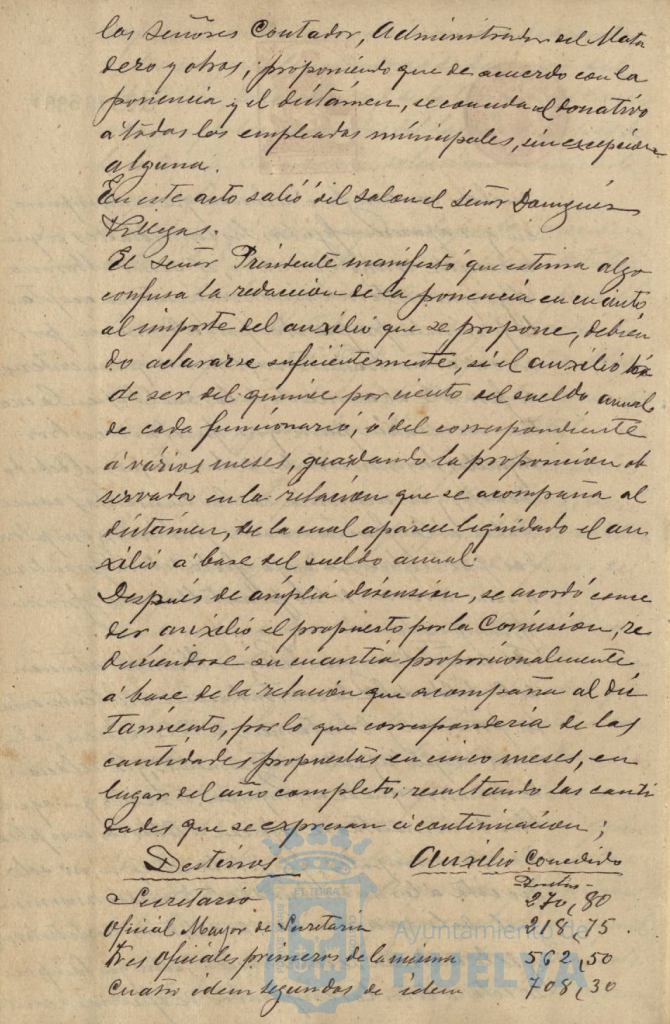 los señores Contador, Administrador del Mata
dero y otros; proponiendo que de acuerdo con la
ponencia y el dictámen, se conceda el donativo
a todos los empleados municipales, sin excepción
alguna.
En este acto salió del salon el señor Dominguez
Villegas.
El señor Presidente manifestó que estima algo
confusa la redacción de la ponencia en cuanto
al importe del auxilio que se propone, debien
do aclararse suficientemente, si el auxilio ha
de ser del quince por ciento del sueldo anual
de cada funcionario, ó del correspondiente
á varios meses, guardando la proporcion ob
servada en la relación que se acompaña al
dictámen, de la cual aparece liquidado el au
xilio á base del sueldo anual.
Después de ámplia discusión, se acordó conce
der auxilio el propuesto por la Comision, re
duciendose su cuantia proporcionalmente
á base de la relación que acompaña al dic
tamiento, por lo que corresponderia de las
cantidades propuestas en cinco meses, en
lugar del año completo; resultando las canti
dades que se expresan á continuacion;
Destinos Auxilio Concedido
Secretario 270,80
Oficial Mayor de Secretaria 218,75
Tres oficiales primeros de la misma 562,50
Cuatro idem segundos de idem 708,30
Ayuntamiento de
HUELVA